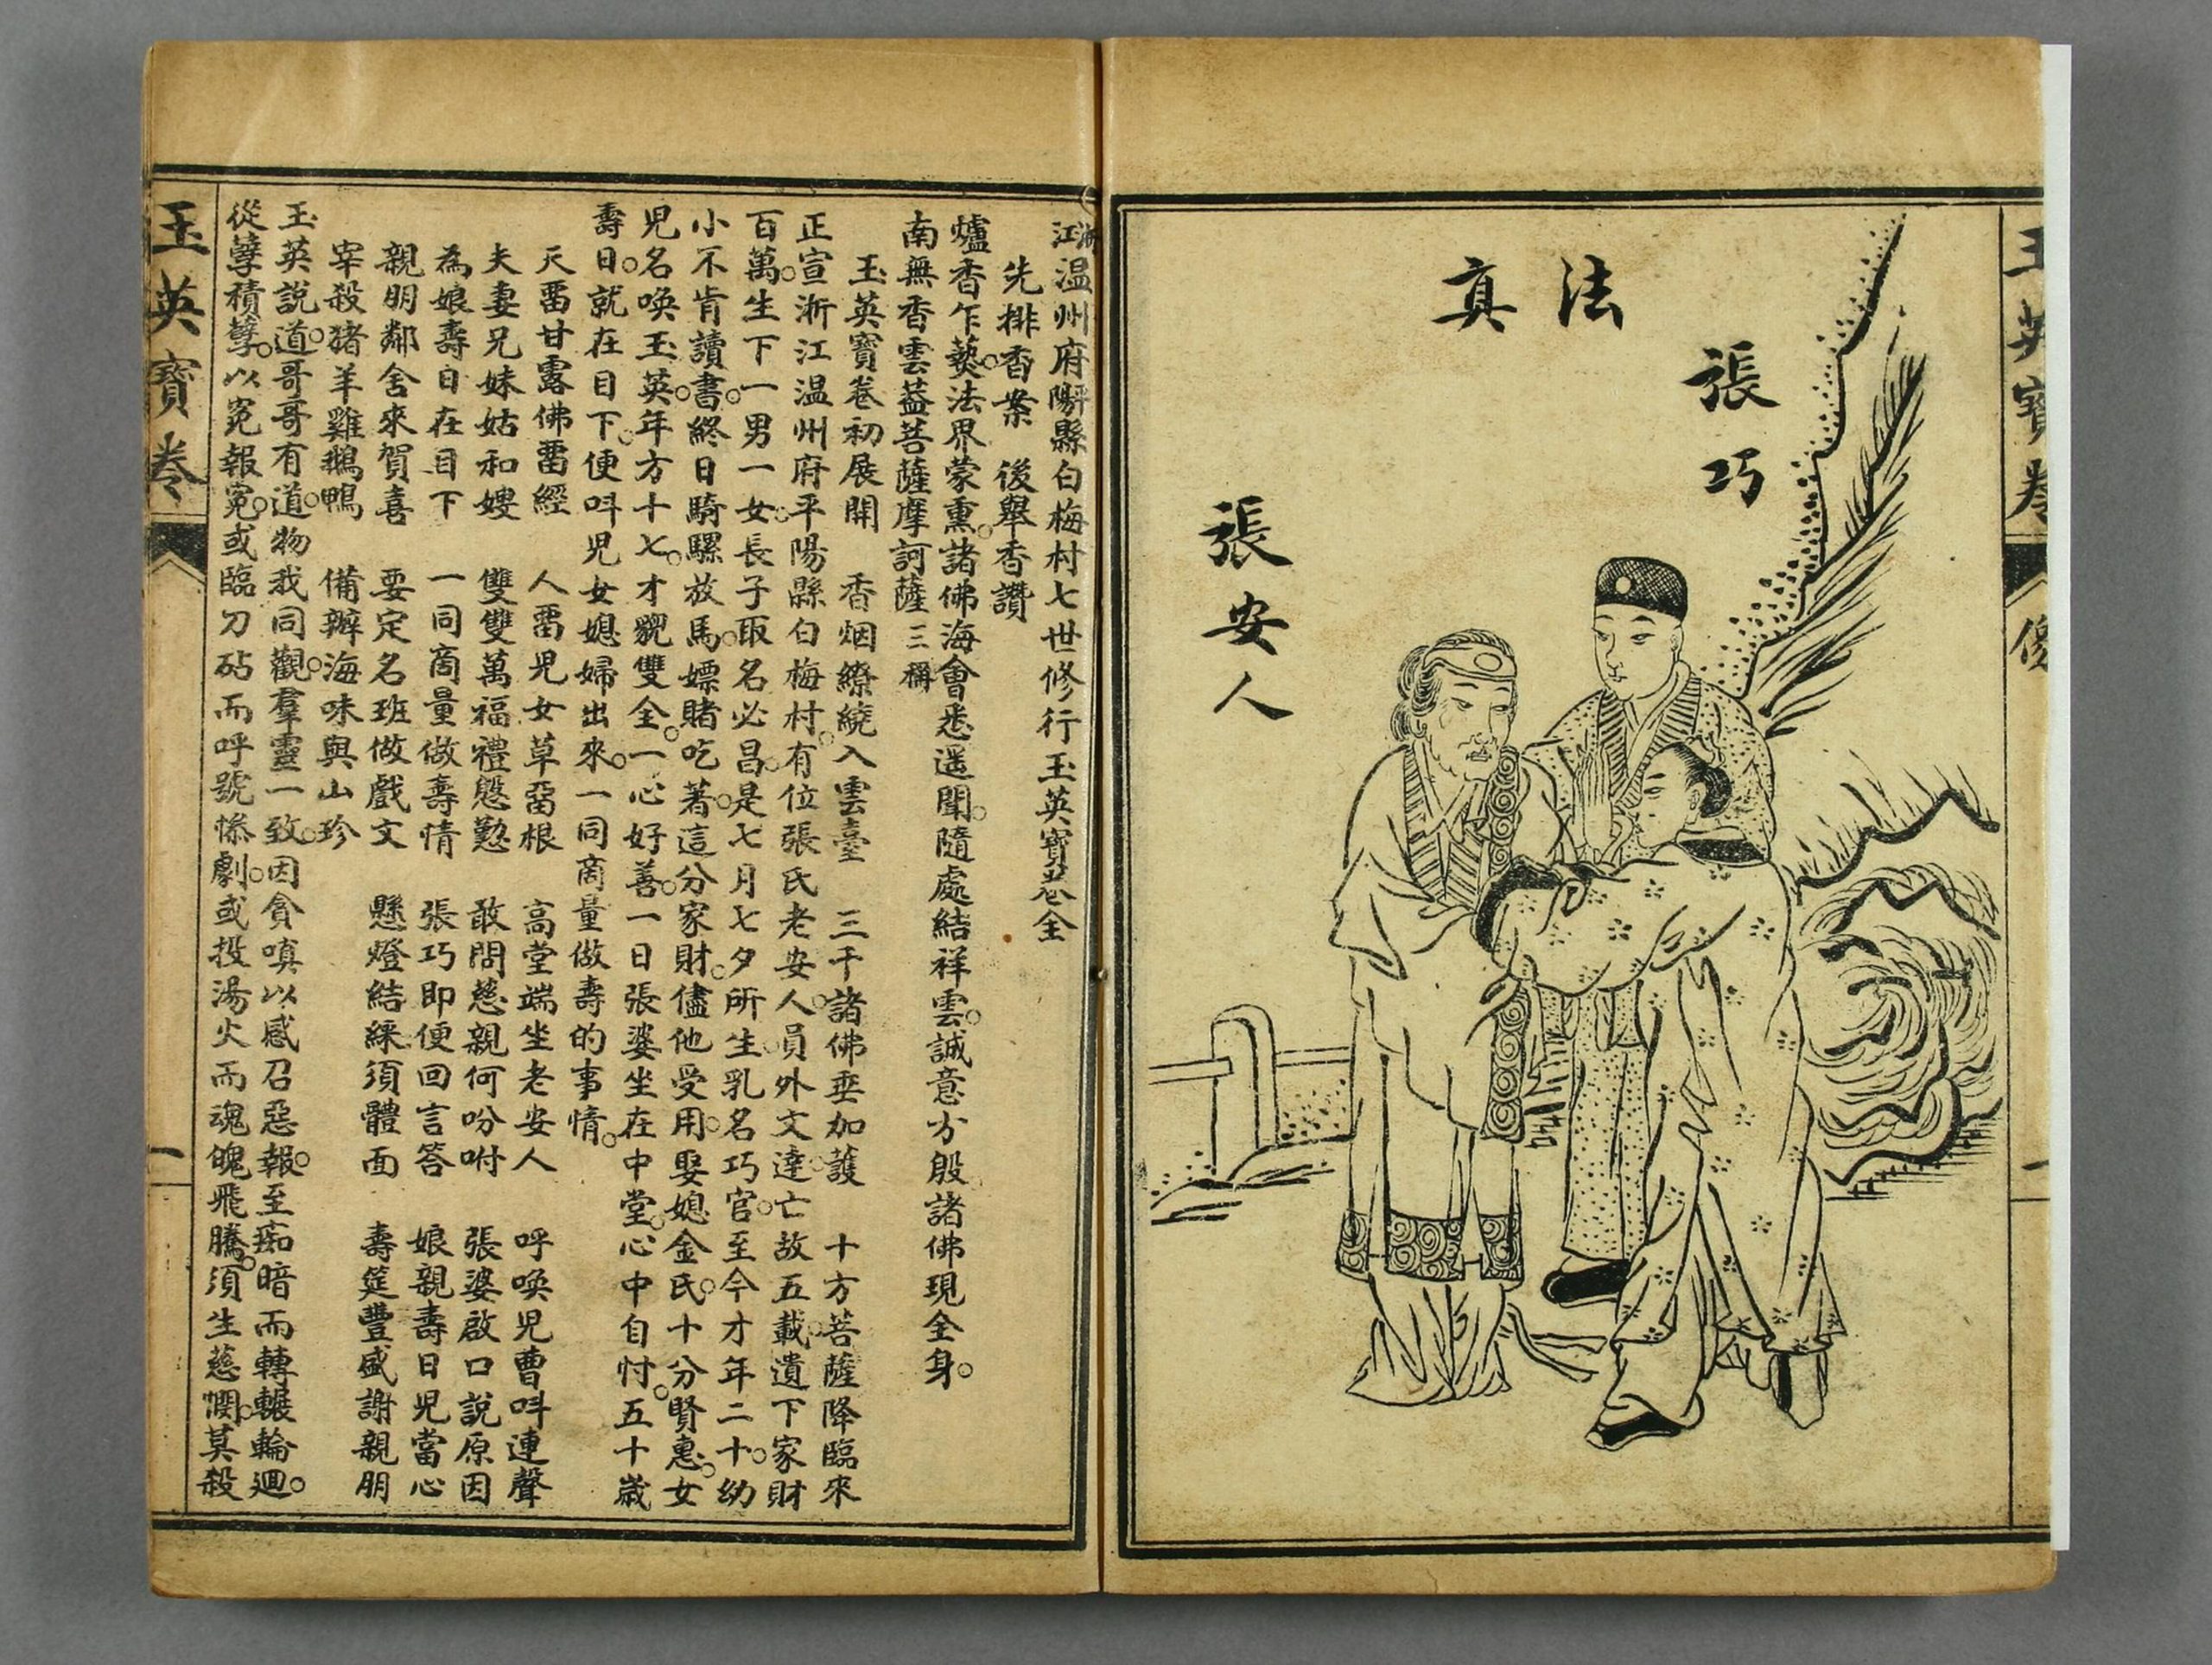 玉英寶卷
像
一
法真
張巧
張安人
浙江温州府平陽縣白梅村七世修行玉英寶卷全
先排香案　後舉香讚
爐香乍爇。法界蒙熏。諸佛海會悉遥聞。隨處結祥雲。誠意方殷諸佛現全身。
南無香雲蓋菩薩摩訶薩三稱
玉英寶卷初展開　香烟繚繞入雲臺　三千諸佛垂加護　十方菩薩降臨來
正宣浙江温州府平陽縣白梅村。有位張氏老安人。員外文達。亡故五載。遺下家財
百萬。生下一男一女。長子取名必昌。是七月七夕所生。乳名巧官。至今才年二十。幼
小不肯讀書。終日騎騾放馬。嫖賭吃著。這分家財。儘他受用。娶媳金氏。十分賢惠。女
兒名喚玉英。年方十七。才貌雙全。一心好善。一日張婆坐在中堂。心中自忖。五十歲
壽日。就在目下。便呌兒女媳婦出來。一同商量做壽的事情。
天畱甘露佛畱經　人畱兒女草畱根　高堂端坐老安人　呼喚兒曹呌連聲
夫妻兄妹姑和嫂　雙雙萬福禮慇懃　敢問慈親何吩咐　張婆啟口説原因
為娘壽日在目下　一同商量做壽情　張巧即便回言答　娘親壽日兒當心
親朋鄰舍來賀喜　要定名班做戲文　懸燈結綵須體面　壽筵豐盛謝親朋
宰殺猪羊雞鵝鴨　備辦海味與山珍
玉英説道。哥哥有道。物我同觀。羣靈一致。因貪嗔以感召惡報。至痴暗而轉輾輪迴。
從孽積孽。以寃報寃。或臨刀砧而呼號慘劇。或投湯火而魂魄飛騰。須生慈憫。莫殺
玉英寶卷
一